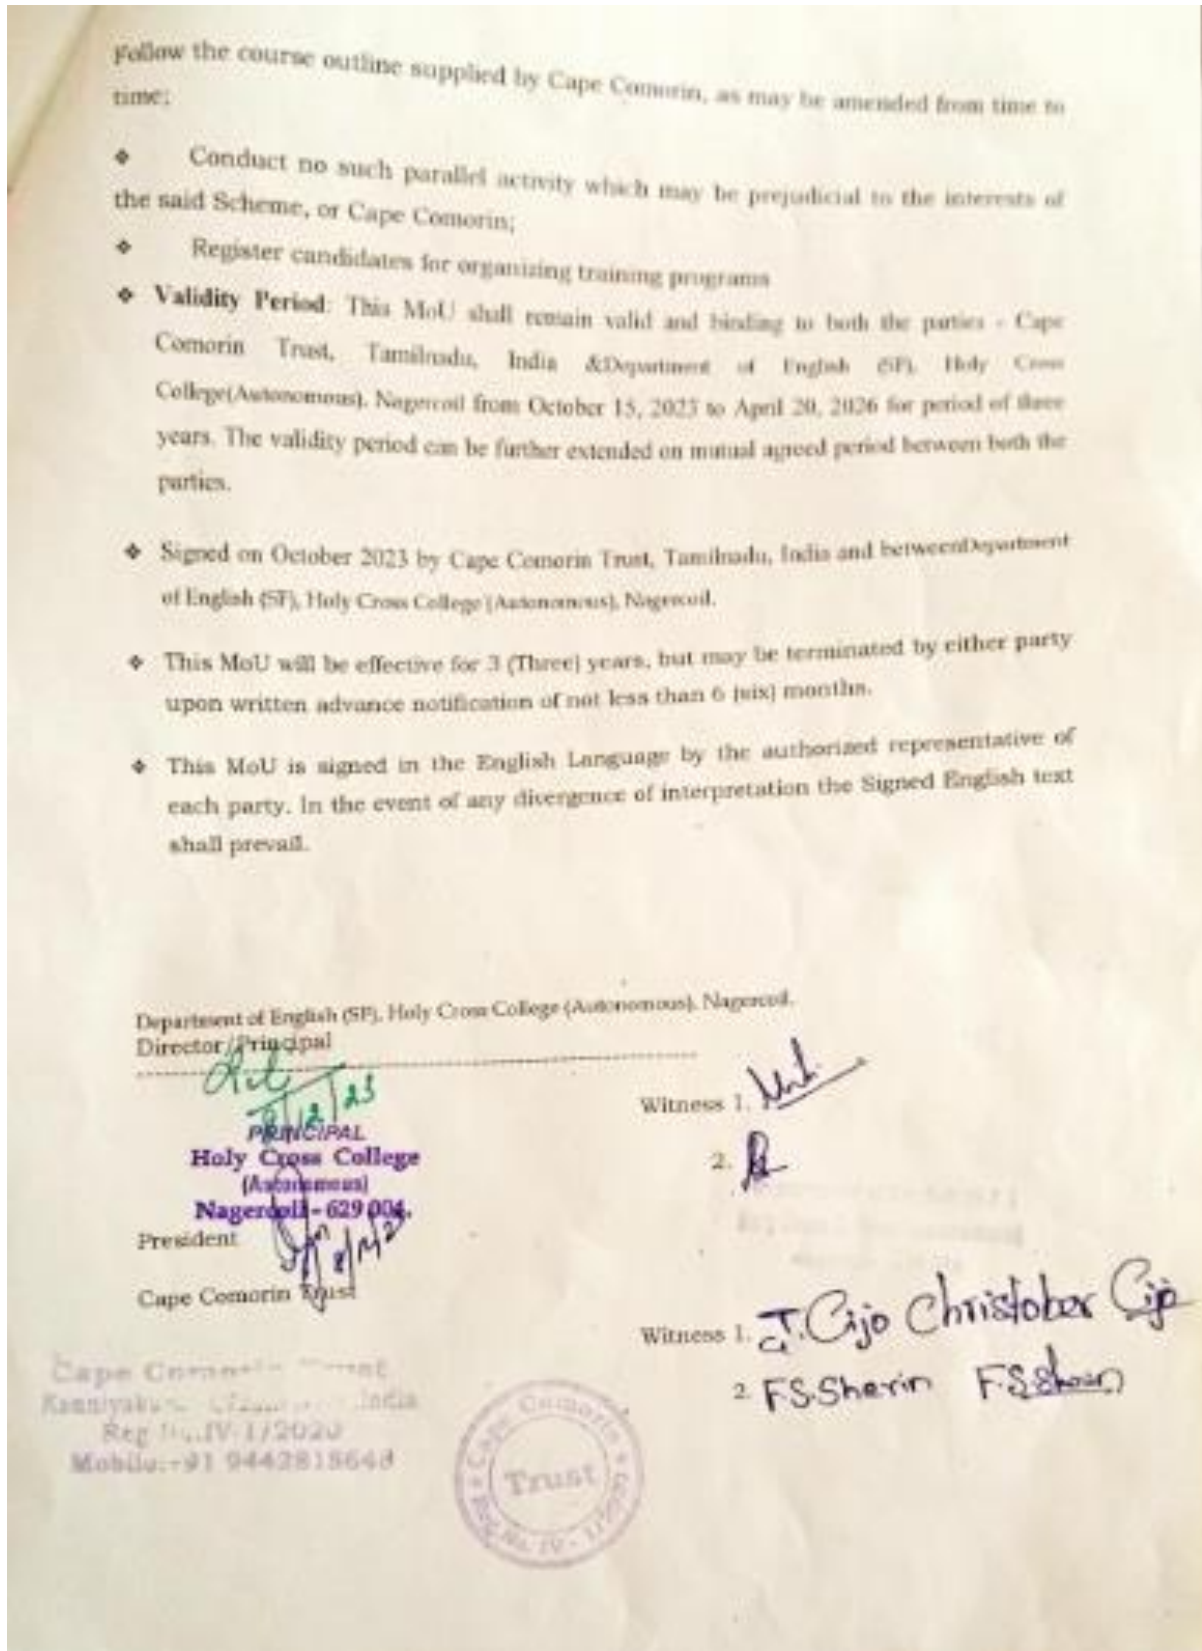 Follow the course outline supplied by Cape Comorin, as may be amended from time to
time;
❖ Conduct no such parallel activity which may be prejudicial to the interests of
the said Scheme, or Cape Comorin;
❖ Register candidates for organizing training programs
❖ Validity Period: This MoU shall remain valid and binding to both the parties - Cape
Comorin Trust, Tamilnadu, India &Department of English (SF), Holy Cross
College(Autonomous), Nagercoil from October 15, 2023 to April 20, 2026 for period of three
years. The validity period can be further extended on mutual agreed period between both the
parties.
❖ Signed on October 2023 by Cape Comorin Trust, Tamilnadu, India and betweenDepartment
of English (SF), Holy Cross College (Autonomous), Nagercoil.
❖ This MoU will be effective for 3 (Three) years, but may be terminated by either party
upon written advance notification of not less than 6 (six) months.
❖ This MoU is signed in the English Language by the authorized representative of
each party. In the event of any divergence of interpretation the Signed English text
shall prevail.
Department of English (SF), Holy Cross College (Autonomous), Nagercoil.
Director/Principal
/12/23
PRINCIPAL
Holy Cross College
(Autonomous)
Nagercoil - 629 004.
Witness 1.
2.
President
8/12/23
Cape Comorin Trust
Witness 1. J. Cijo Christober Cijo
2. F.S.Sherin F.S.Sherin
Cape Comorin Trust
India
Reg No.IV-1/2020
Mobile:+91 9442818648
Cape Comorin
Trust
Reg No. IV - 1/2020